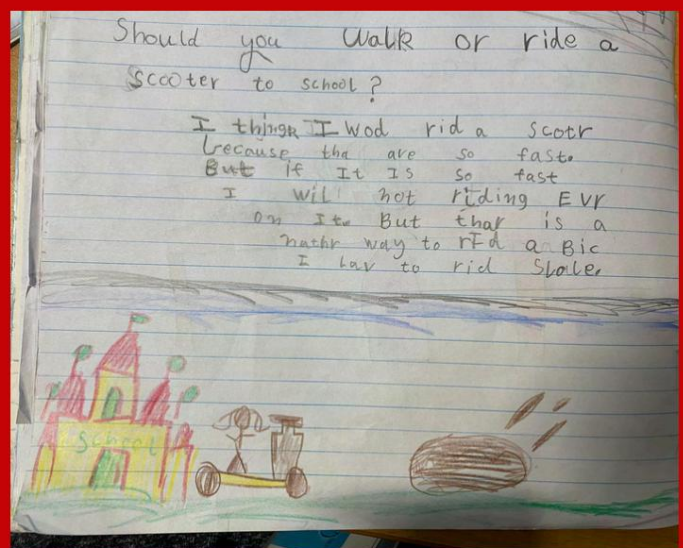 Should you Walk or ride a
Scooter to school?
I thingk I wod rid a scotr
because tha are so fast.
But if It Is so fast
I wil not riding Evr
on Ite But thar is a
nathr way to rId a Bic
I Lav to rid
School